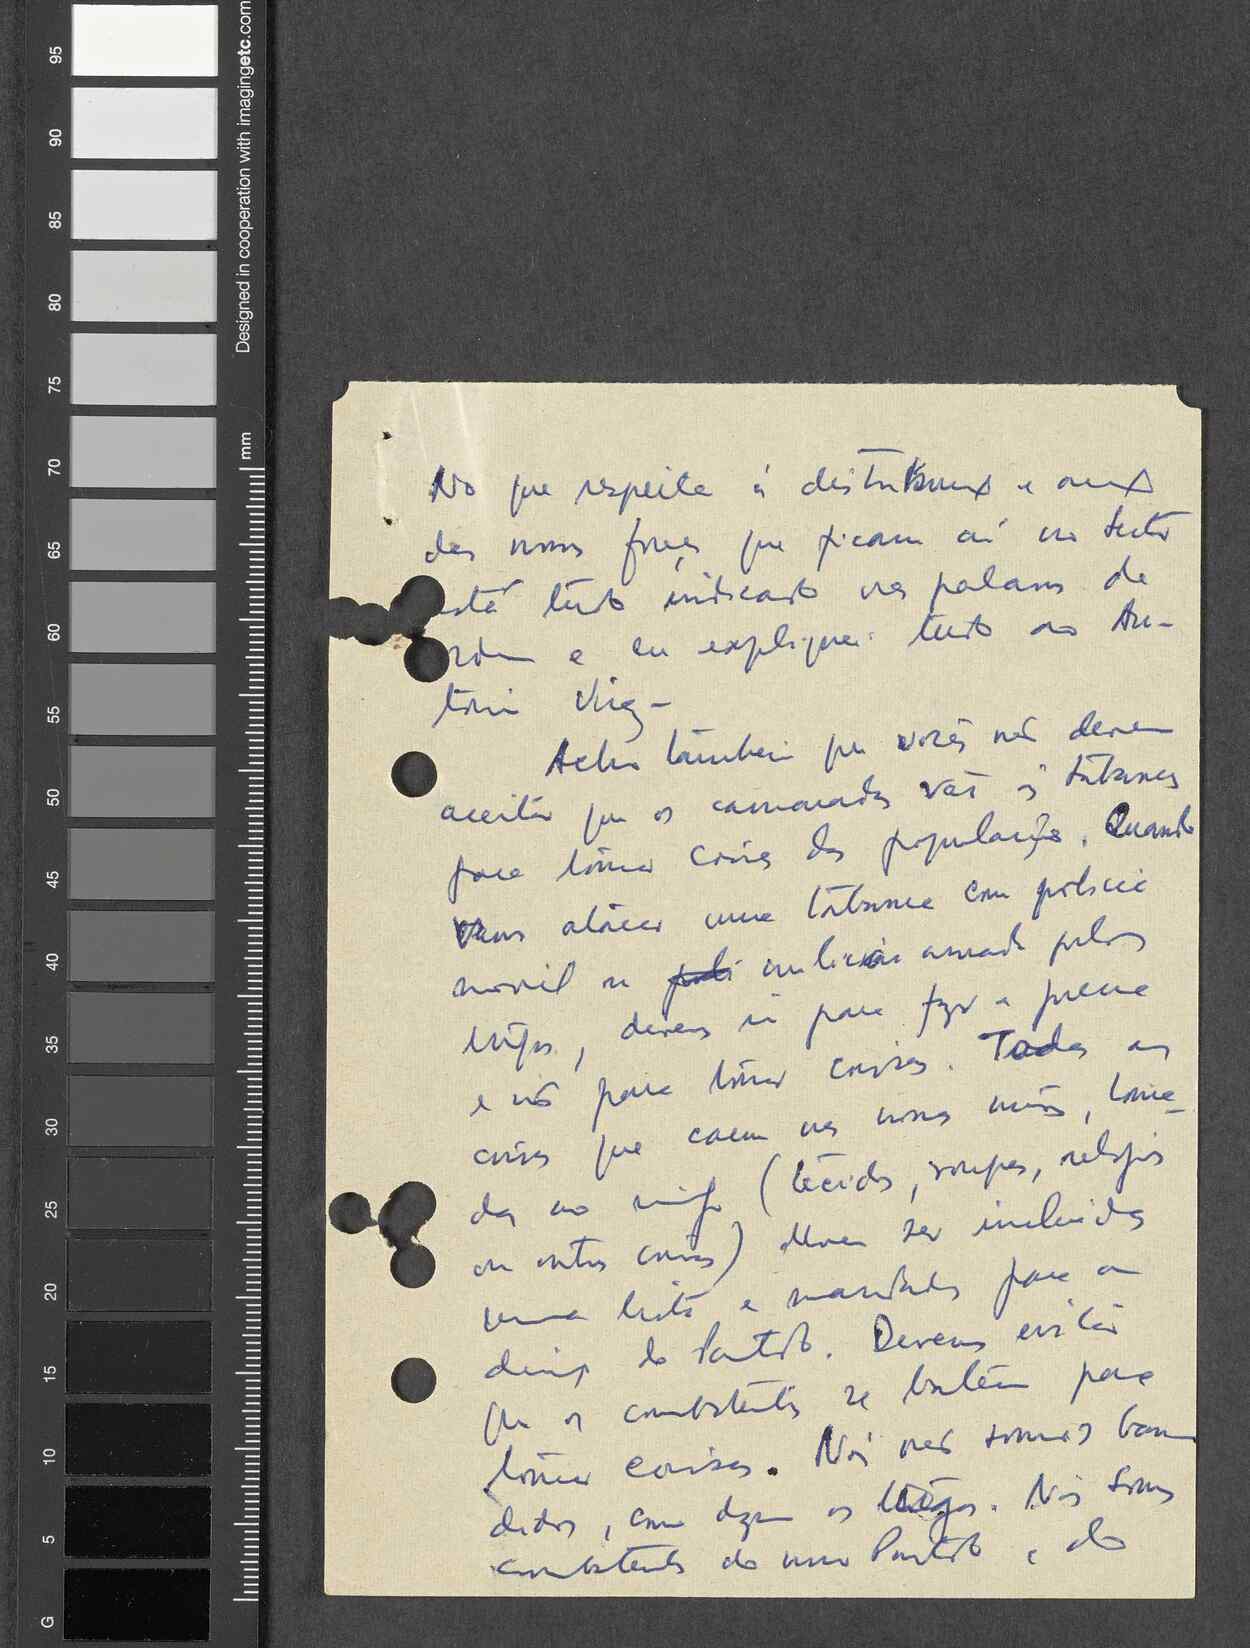 95
90
85
80
75
70
65
60
55
50
45
40
35
30
25
20
15
10
5
G
mm
Designed in cooperation with imagingetc.com
No que respeita à distribuição e
das nossas forças que ficam aí no Sector
está tudo indicado nas palavras de
ordem e eu expliquei tudo ao An-
tonio
Acho também que vocês não devem
aceitar que os camaradas vão às tabancas
para tomar coisas das populações. Quando
vamos atacar uma tabanca com polícia
movel ou poli milicias armada pelos
tugas, devemos ir para fazer a guerra
e não para tomar coisas. Todas as
coisas que caem nas nossas mãos, toma-
das ao inimigo (tecidos, roupas, relógios
ou outras coisas) devem ser incluidas
numa lista e mandadas para a
direcção do Partido. Devemos evitar
que os combatentes se batam para
tomar coisas. Nós não somos ban
didos, como dizem os tugas. Nós somos
combatentes do nosso Partido e do